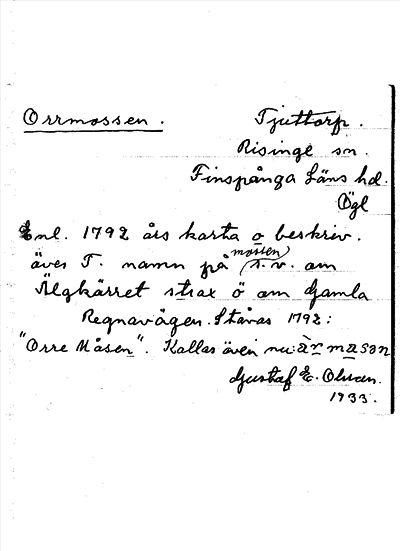 Orrmossen.
Tjuttorp.
Risinge sn.
Finspånga Läns hd.
Ögl
Enl. 1792 års karta o beskriv.
även T. namn på mossen s.v. om
Älgkärret strax ö om Gamla
Regnavägen. Stavas 1792:
"Orre Måsen". Kallas även nu: àrmasan
Gustaf E. Olsson.
1933.